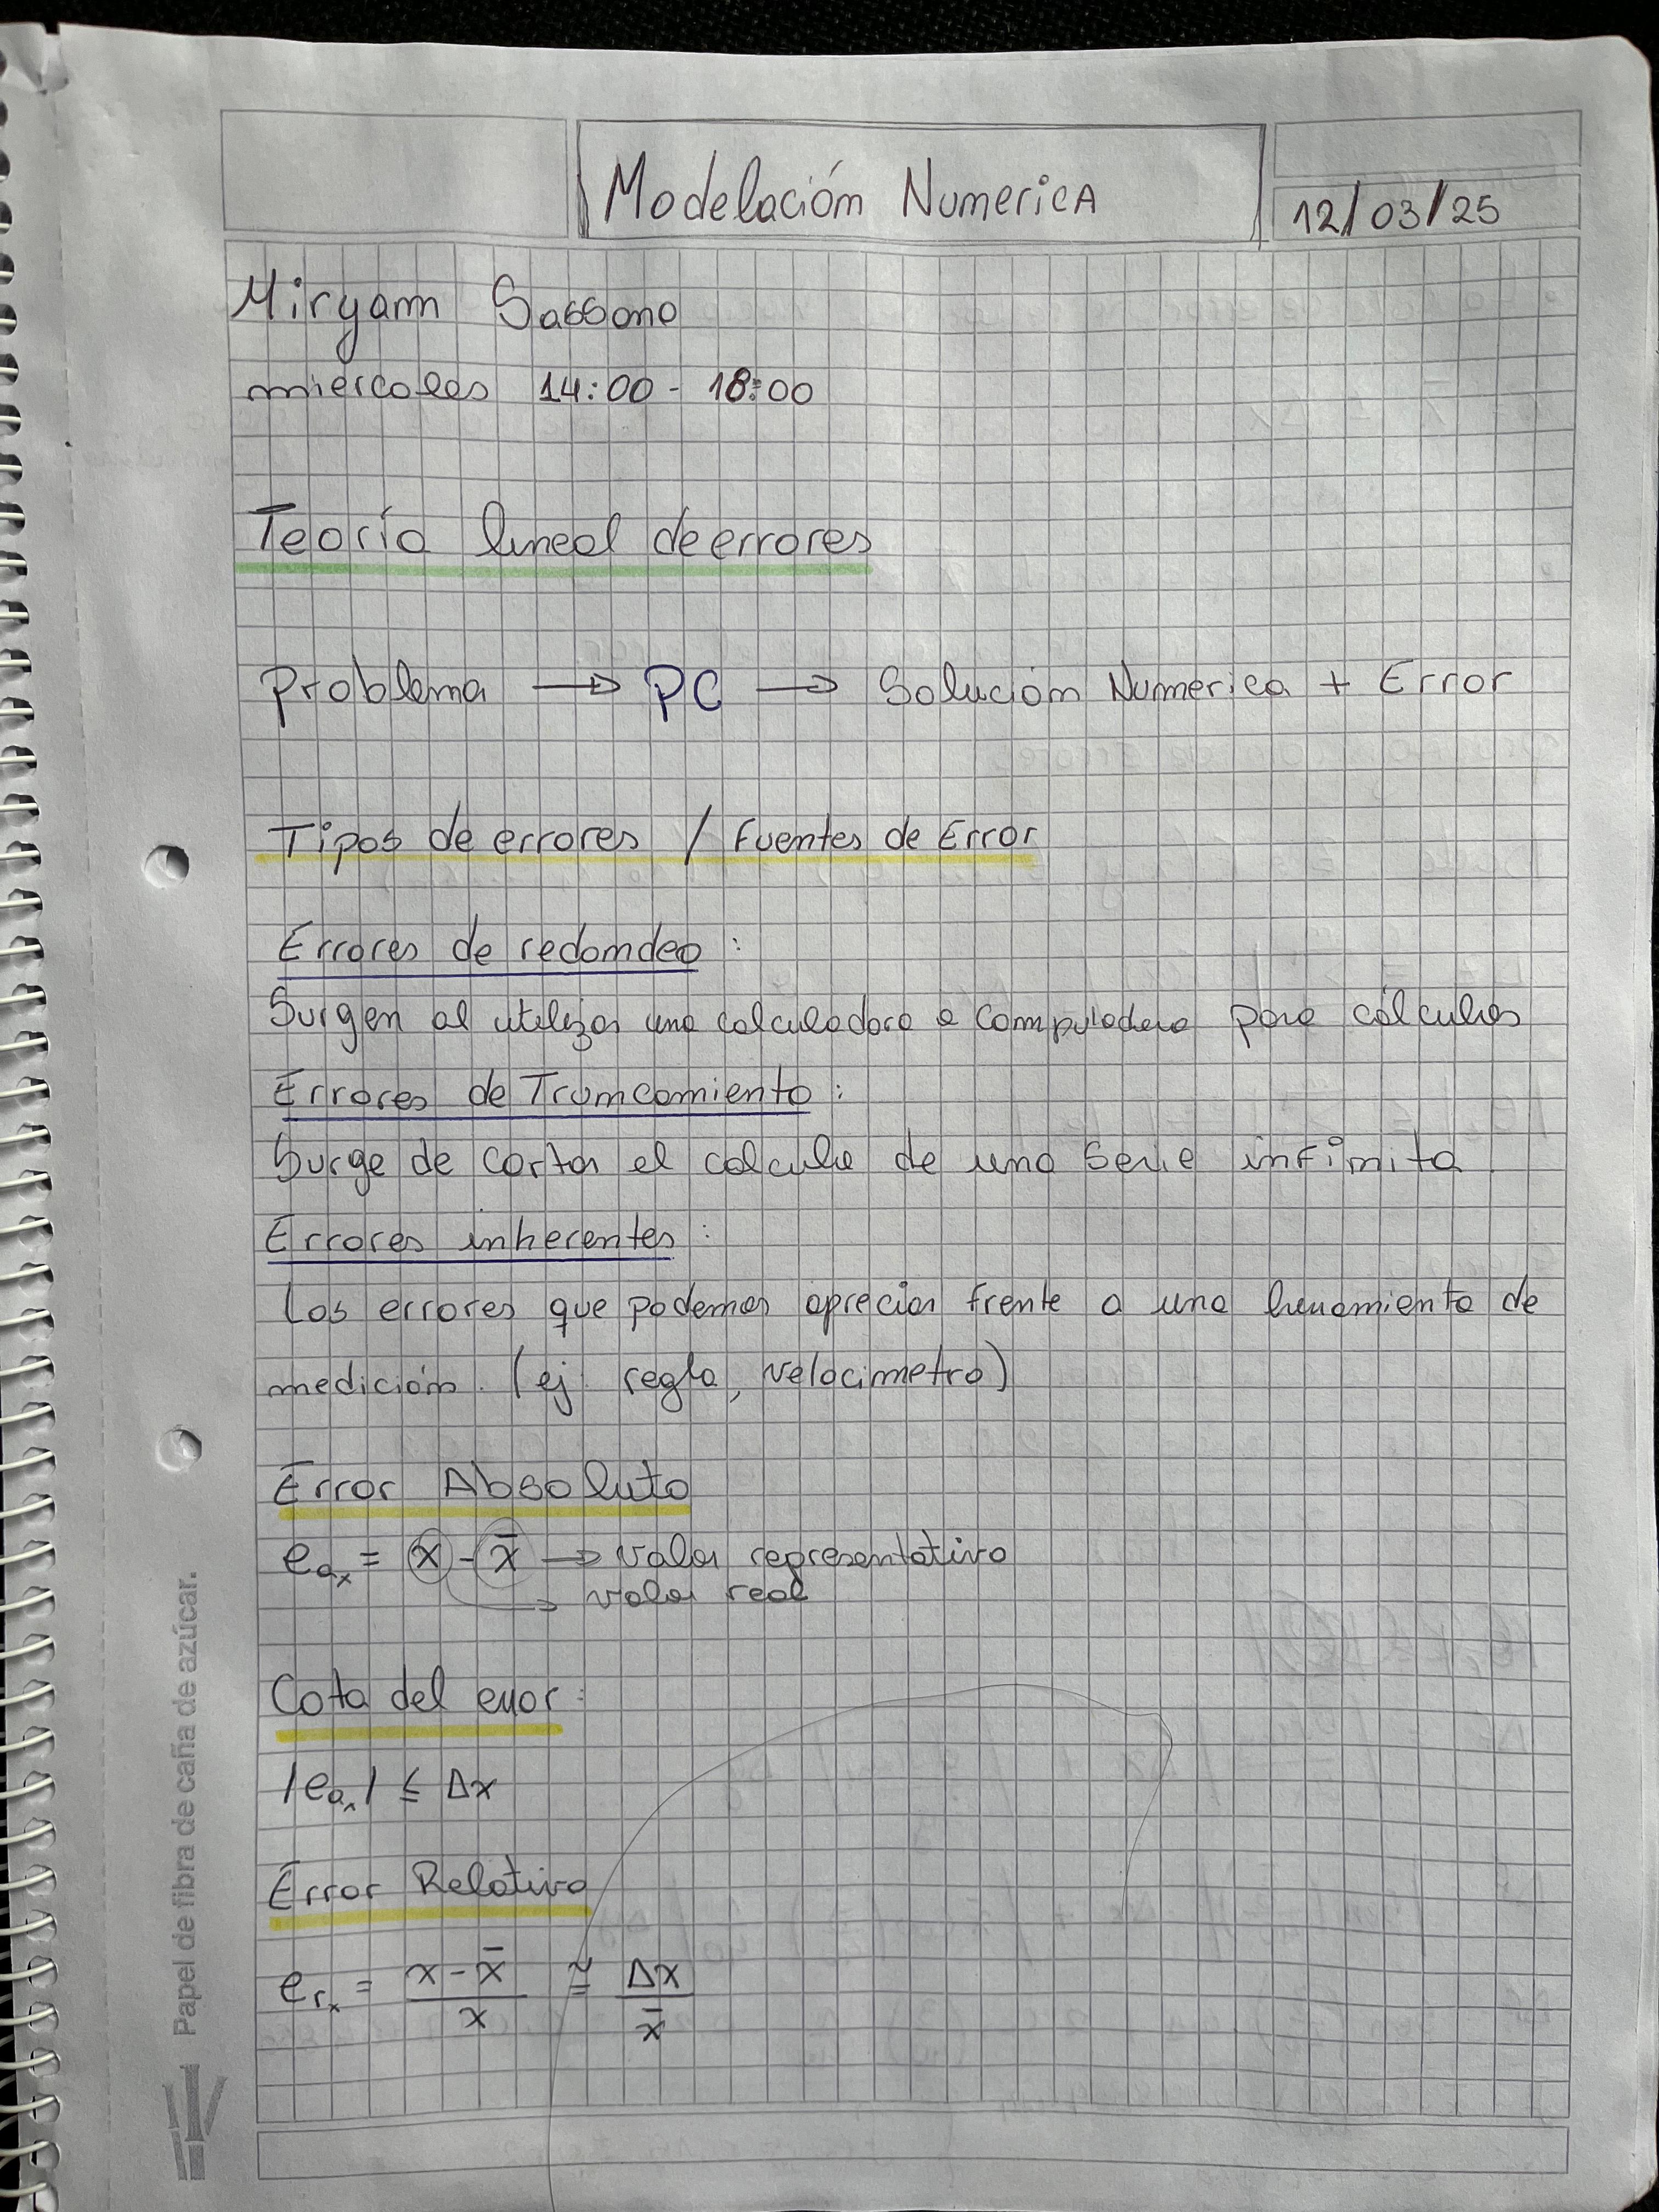 Modelación Numerica
12/03/25
Miryam Sassano
miércoles 14:00 - 18:00
Teoría lineal de errores
Problema → PC → Solución Numerica + Error
Tipos de errores / Fuentes de Error
Errores de redondeo :
Surgen al utilizar una calculadora o computadora para cálculos
Errores de Truncamiento :
Surge de cortar el calculo de una serie infinita
Errores inherentes :
Los errores que podemos apreciar frente a una herramienta de
medición. (ej. regla, velocimetro)
Error Absoluto
eₐₓ = x - x̄ → valor representativo
→ valor real
Cota del error :
|eₐₓ| ≤ Δx
Error Relativo
eᵣₓ = (x - x̄)/x ≅ Δx/x̄
Papel de fibra de caña de azúcar.